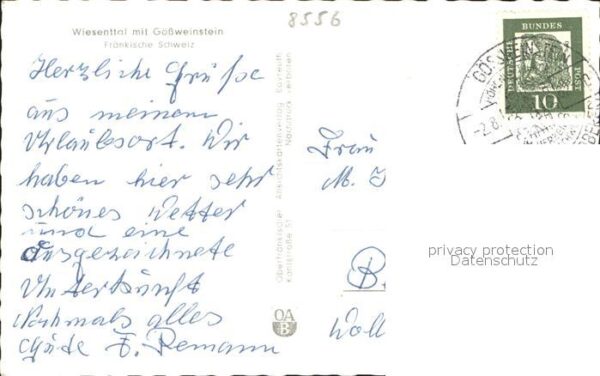 8556
Wiesenttal mit Gößweinstein
Fränkische Schweiz
Herzliche Grüße
aus meinem
Urlaubsort. Wir
haben hier sehr
schönes Wetter
und eine
ausgezeichnete
Unterkunft
Nochmals alles
Gute E. Remann
Oberfränkischer Ansichtskartenverlag Bayreuth
Karlstraße 51 Nachdruck verboten
OA
B
DEUTSCHE BUNDES POST
10
-2.8.
Frau
M.
B.
privacy protection
Datenschutz